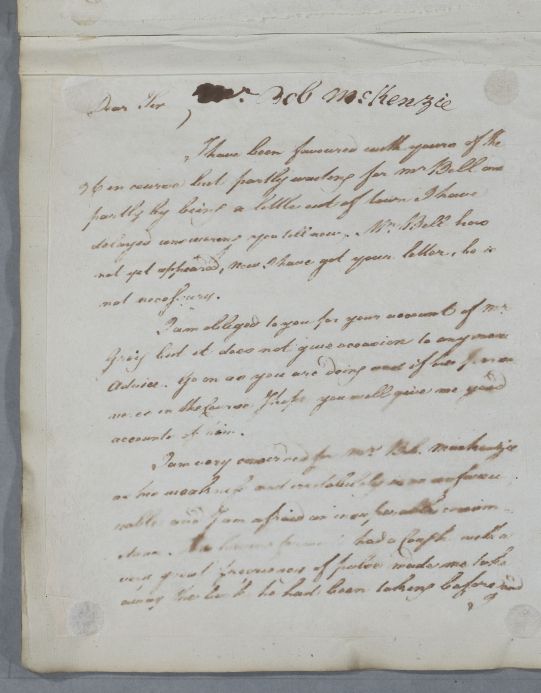 Dear Sir Mr Bob McKenzie
I have been favoured with yours of the
in course but partly waiting for Mr Bell and
partly by being a little out of town I have
delayed answering you till now. Mr Bell has
not yet appeared, now I have got your letter, he is
not necessary.
I am obliged to you for your account of Mr
Greig but it does not give occasion to any more
Advice. Go on as you are doing and if he
in the Course I hope you will give me good
accounts of him.
I am very concerned for Mr Bob. Mackenzie
as his weakness and are
and I am afraid an
had a Cough with a
very great frequency of pulse made me take
away the he had been taking before and